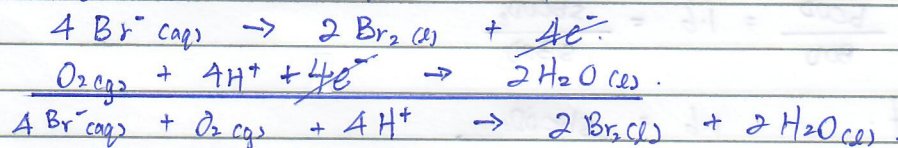 4 Br⁻ (aq) → 2 Br₂ (l) + 4e⁻.
O₂ (g) + 4H⁺ + 4e⁻ → 2H₂O (l).
4 Br⁻ (aq) + O₂ (g) + 4 H⁺ → 2 Br₂ (l) + 2 H₂O (l)